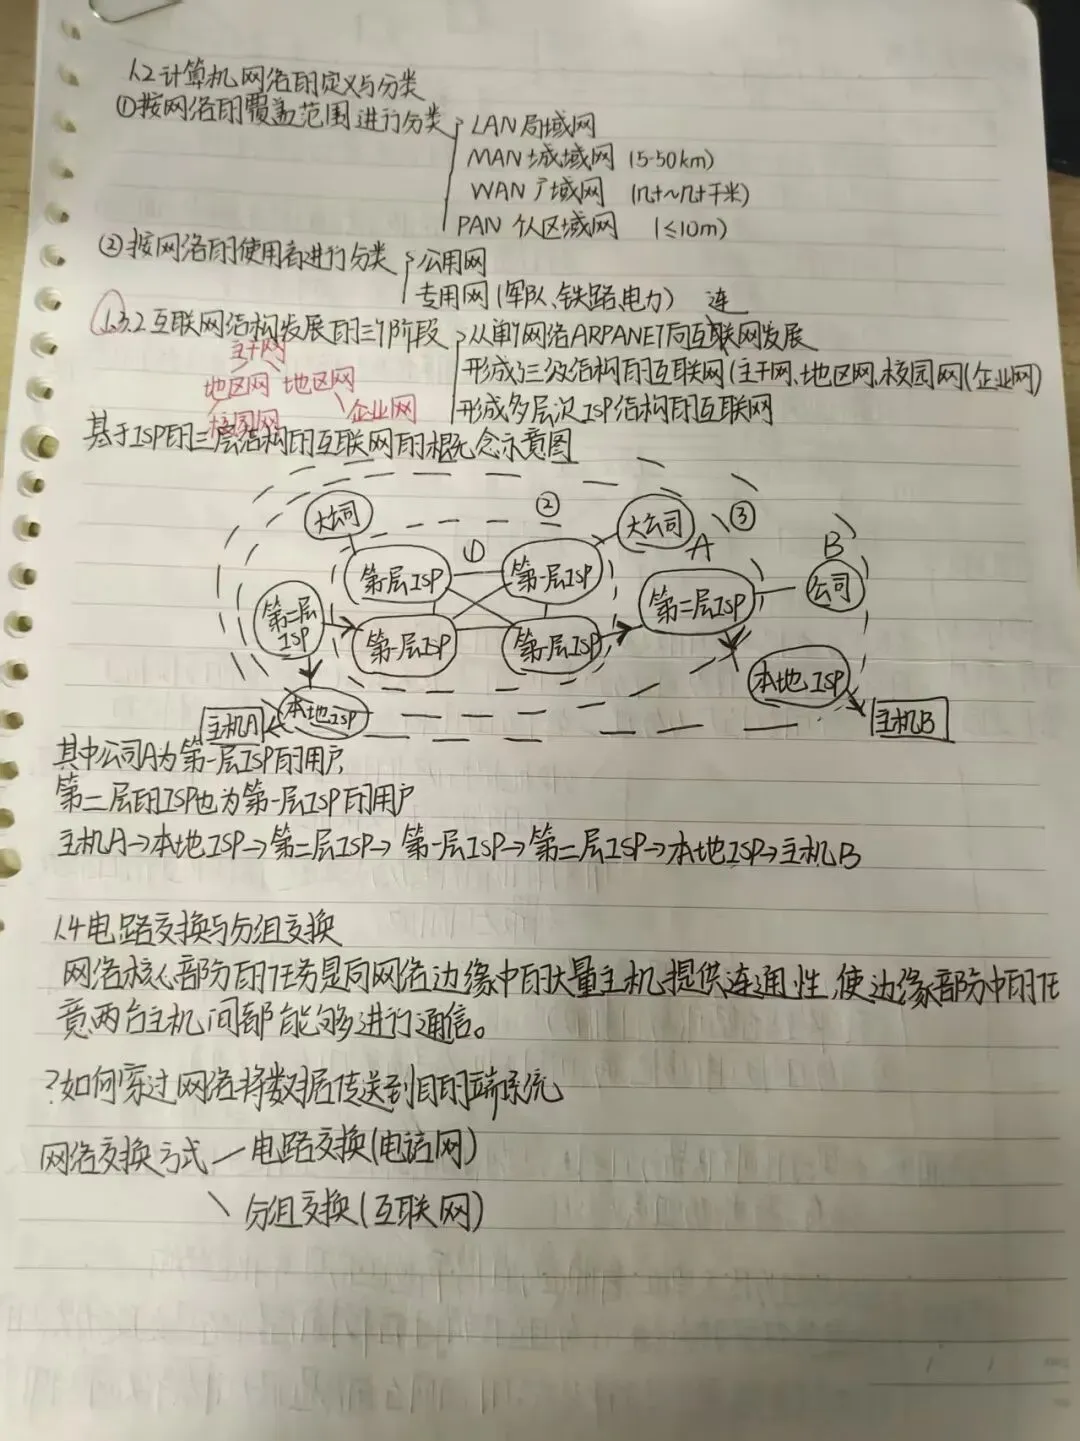 1.2 计算机网络的定义与分类
①按网络的覆盖范围进行分类 LAN 局域网
MAN 城域网 (5-50km)
WAN 广域网 (几十~几千千米)
PAN 个人区域网 (≤10m)
②按网络的使用者进行分类 公用网
专用网(军队、铁路、电力) 连
1.3.2 互联网结构发展的三个阶段 从单个网络ARPANET向互联网发展
主干网
形成了三级结构的互联网(主干网、地区网、校园网(企业网)
地区网 地区网
校园网 企业网
形成多层次ISP结构的互联网
基于ISP的三层结构的互联网的概念示意图
大公司 ② 大公司 A ③ B
第一层ISP ① 第一层ISP 第二层ISP 公司
第二层ISP 第一层ISP 第一层ISP
本地ISP
主机A 本地ISP 主机B
其中公司A为第一层ISP的用户,
第二层的ISP也为第一层ISP的用户
主机A→本地ISP→第二层ISP→第一层ISP→第二层ISP→本地ISP→主机B
1.4 电路交换与分组交换
网络核心部分的任务是向网络边缘中的大量主机提供连通性,使边缘部分中的任
意两台主机间都能够进行通信。
?如何穿过网络将数据传送到目的端系统
网络交换方式 电路交换(电话网)
分组交换(互联网)